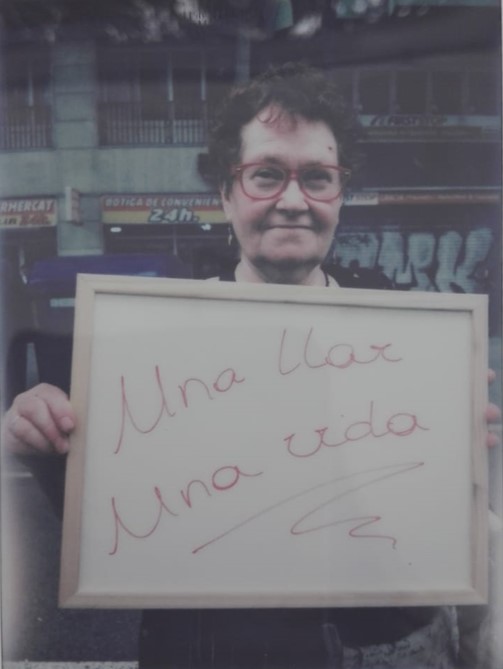 RMERCAT
BOTIGA DE CONVENIEN
24h.
Una llar
Una vida